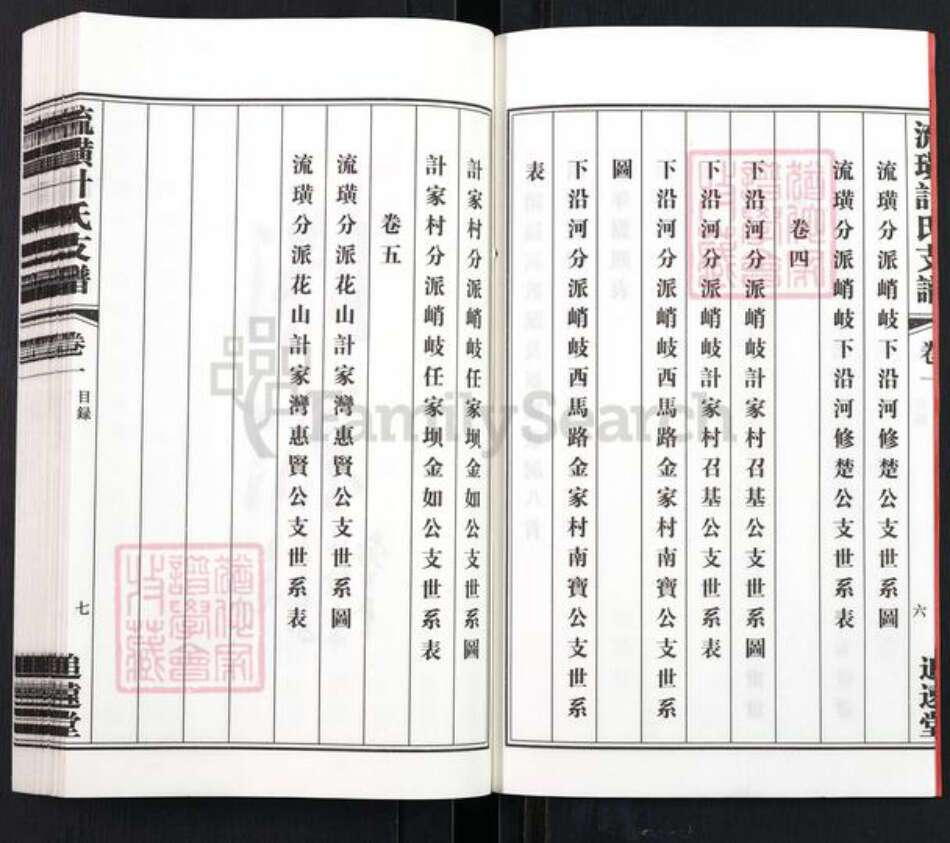 流璜計氏支譜
卷一
六
追遠堂
流璜分派峭岐下沿河修楚公支世系圖
流璜分派峭岐下沿河修楚公支世系表
卷四
下沿河分派峭岐計家村召基公支世系圖
下沿河分派峭岐計家村召基公支世系表
下沿河分派峭岐西馬路金家村南寶公支世系
圖
下沿河分派峭岐西馬路金家村南寶公支世系
表
計家村分派峭岐任家坝金如公支世系圖
計家村分派峭岐任家坝金如公支世系表
卷五
流璜分派花山計家灣惠賢公支世系圖
流璜分派花山計家灣惠賢公支世系表
流璜計氏支譜
卷一
目録
七
追遠堂
FamilySearch